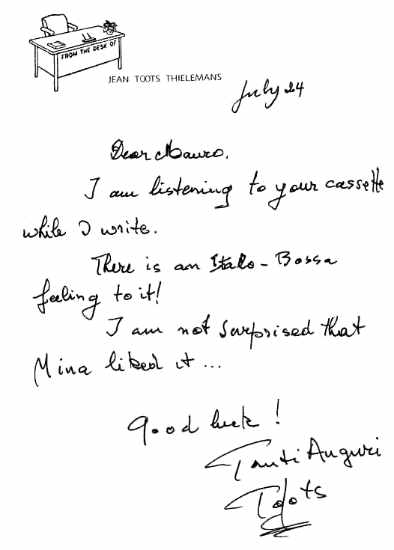 FROM THE DESK OF
JEAN TOOTS THIELEMANS
July 24
Dear Mauro.
I am listening to your cassette
while I write.
There is an Italo-Bossa
feeling to it!
I am not surprised that
Mina liked it ...
Good luck!
Tanti Auguri
Toots